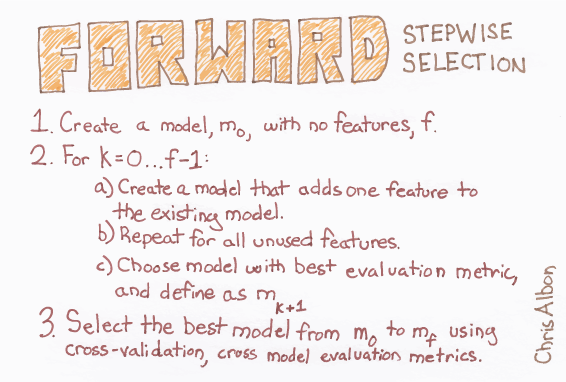 FORWARD STEPWISE SELECTION
1. Create a model, m₀, with no features, f.
2. For k=0...f-1:
a) Create a model that adds one feature to
the existing model.
b) Repeat for all unused features.
c) Choose model with best evaluation metric,
and define as m k+1
3. Select the best model from m₀ to m_f using
cross-validation, cross model evaluation metrics.
Chris Albon